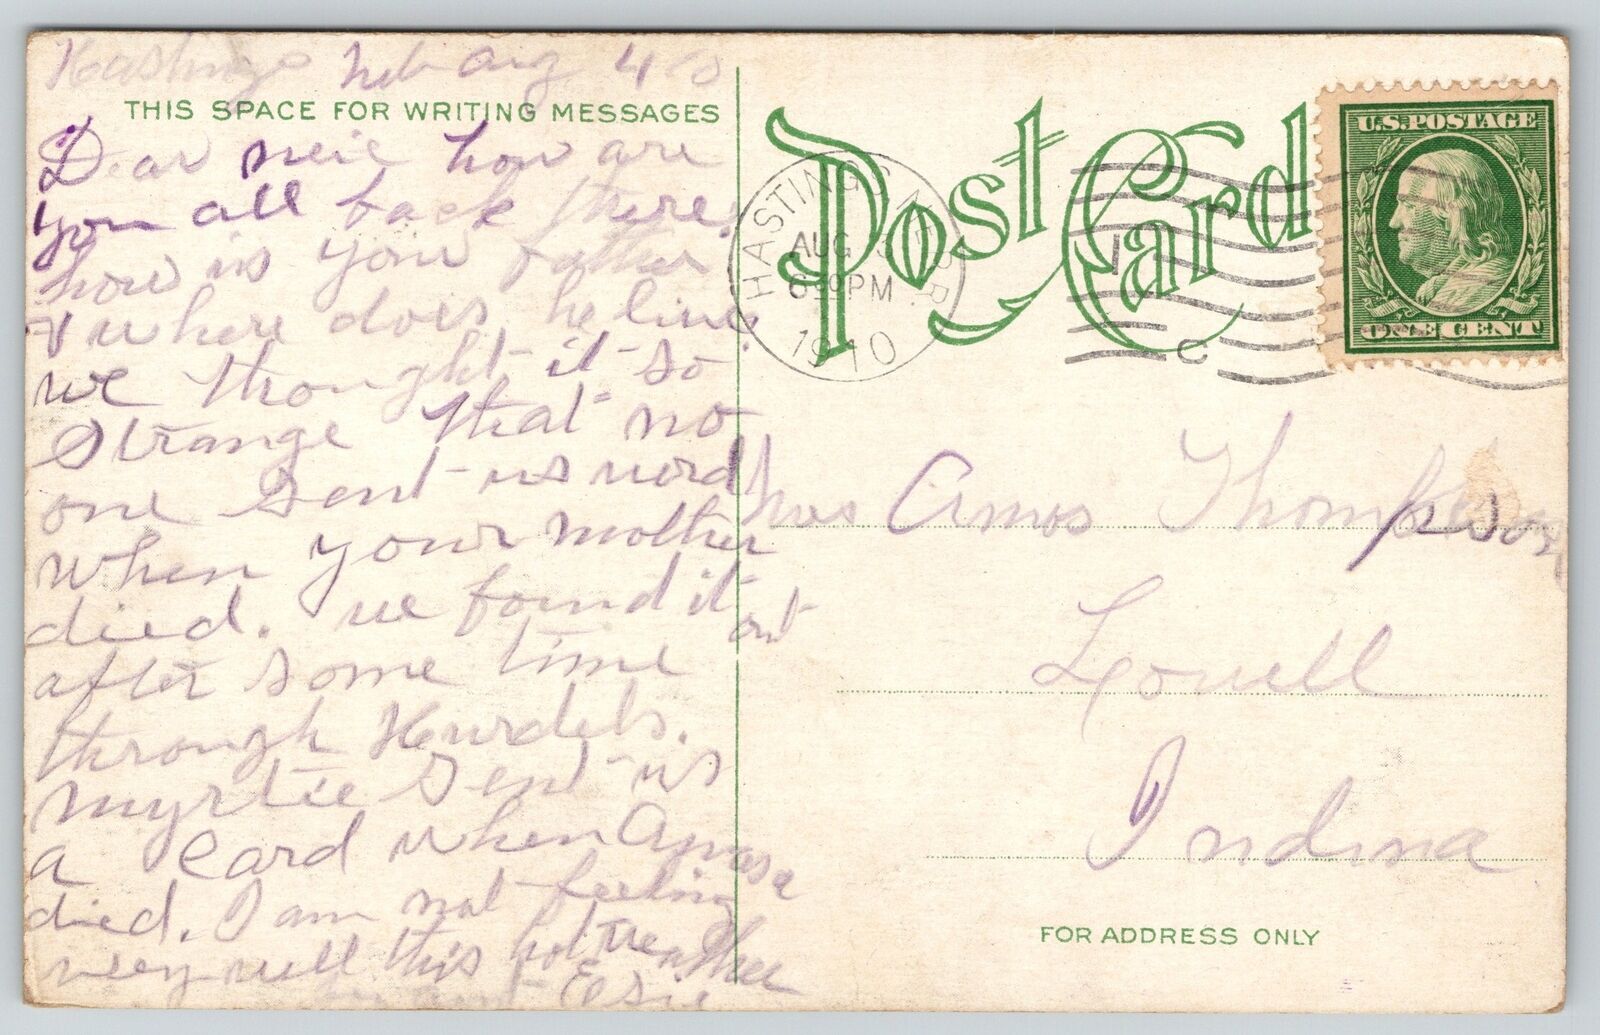 Hastings Neb Aug 4 - 10
THIS SPACE FOR WRITING MESSAGES
Dear neice how are
you all back there.
how is your father
& where does he live.
we thought it so
strange that no
one sent us word
when your mother
died. we found it out
after some time
through Hurdels.
myrtie sent us
a card when Amasa
died. I am not feeling
very well this hot weather
aunt Elsie
Post Card
HASTINGS, NEBR.
AUG
6 30 PM
1910
1
C
U.S. POSTAGE
ONE CENT
Mrs Amos Thompson,
Lowell
Indina
FOR ADDRESS ONLY